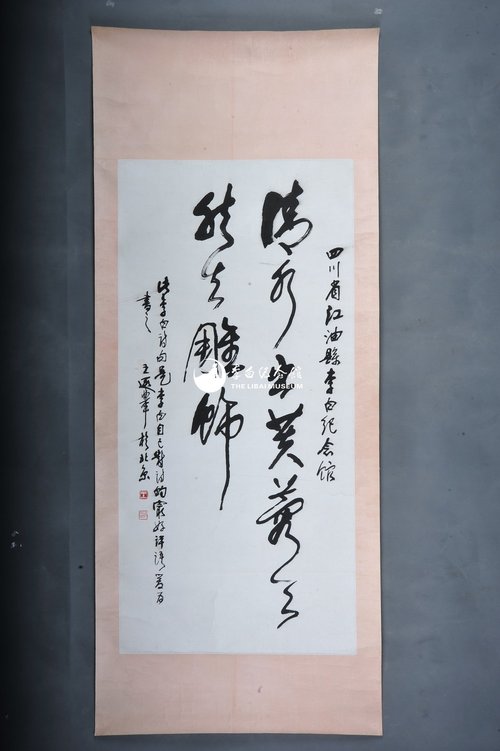 四川省江油縣李白紀念馆
清水出芙蓉天
然去雕飾
此李白詩句是李白自己對詩的最好評語爰为
書之
王遐舉於北京
李白纪念馆
THE LIBAI MUSEUM